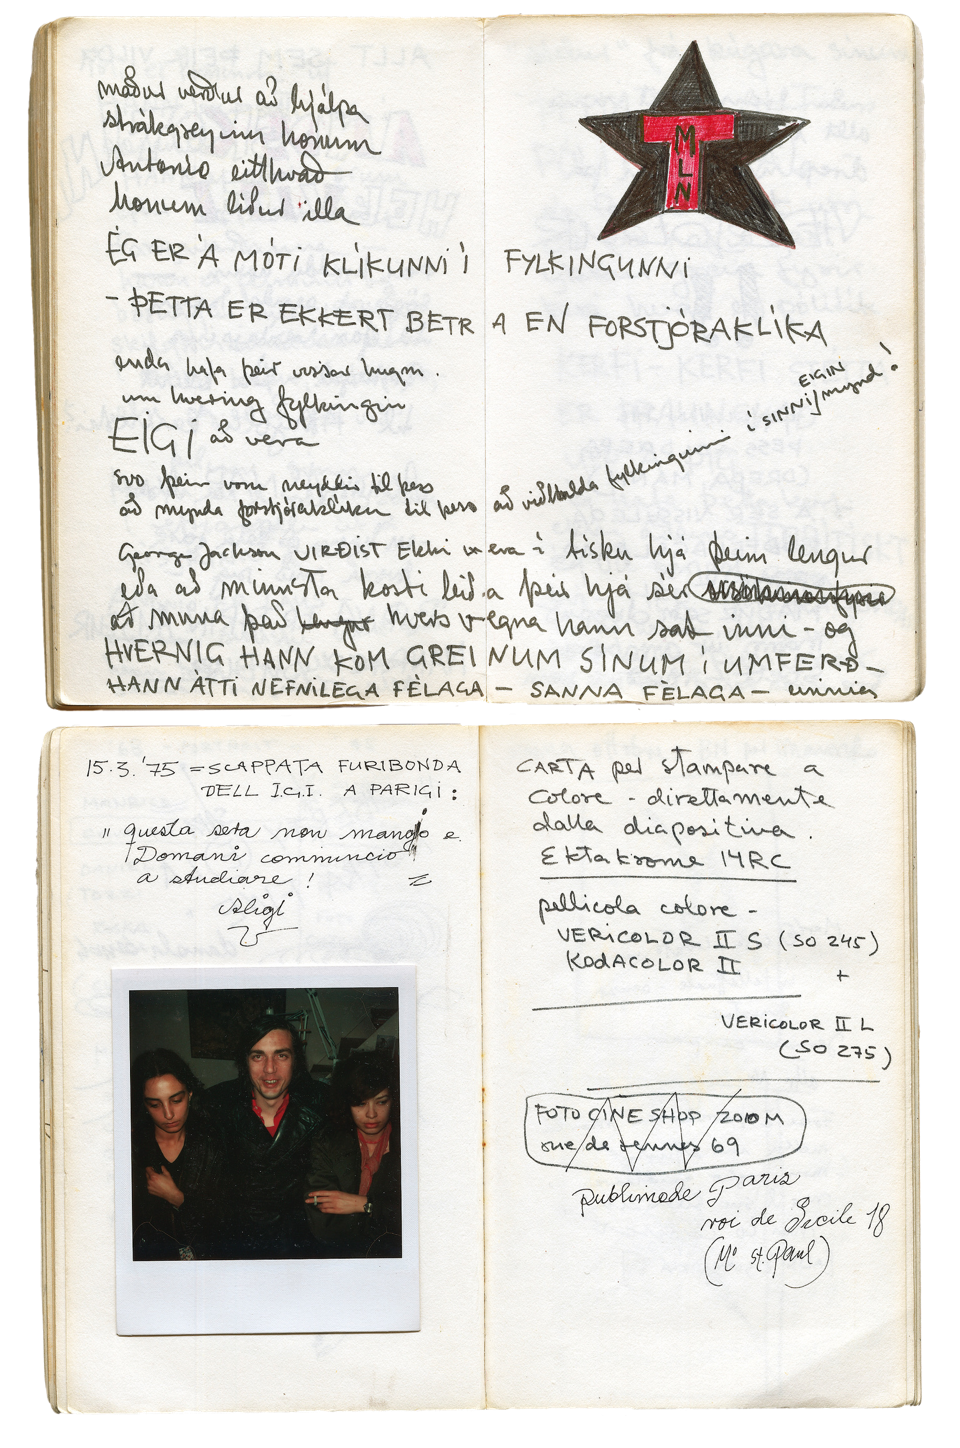 maður verður að hjálpa
strákgreyinu honum
Antonio eitthvað
honum líður illa
T
MLN
ÉG ER Á MÓTI KLÍKUNNI Í FYLKINGUNNI
- ÞETTA ER EKKERT BETRA EN FORSTJÓRAKLÍKA
enda hafa þeir vissar hugm.
um hvernig fylkingin
EIGI að vera
svo þeir voru neyddir til þess
að mynda forstjóraklíku til þess að viðhalda fylkingunni í SINNI EIGIN mynd!
George Jackson VIRÐIST Ekki vera í tísku hjá þeim lengur
eða að minnsta kosti leiða þeir hjá sér
að muna það lengur hvers vegna hann sat inni - og
HVERNIG HANN KOM GREINUM SÍNUM Í UMFERÐ -
HANN ÁTTI NEFNILEGA FÉLAGA - SANNA FÉLAGA -
15.3.'75 = SCAPPATA FURIBONDA
DELL I.G.I. A PARIGI:
" questa sera non mangio e
Domani commincio
a studiare !
Aligi
CARTA per stampare a
colore - direttamente
dalla diapositiva.
Ektakrome 14RC
pellicola colore -
VERICOLOR II S (SO 245)
KODACOLOR II
+
VERICOLOR II L
(SO 275)
FOTO CINE SHOP ZOOM
rue de rennes 69
Publimode Paris
roi de Secile 18
(Mo St. Paul)